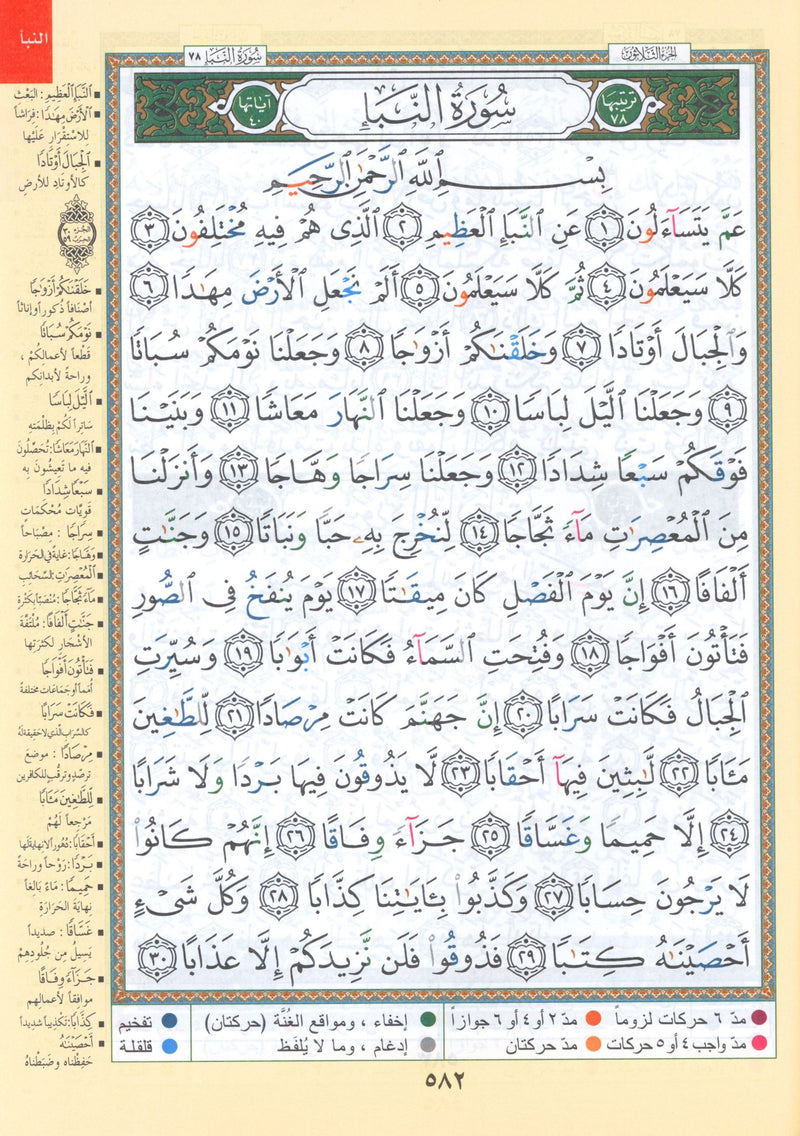 النبأ
الجزء الثلاثون
سُورَةُ النَّبَإِ ٧٨
ترتيبها ٧٨
سُورَةُ النَّبَإِ
آياتها ٤٠
بِسْمِ ٱللَّهِ ٱلرَّحْمَٰنِ ٱلرَّحِيمِ
عَمَّ يَتَسَآءَلُونَ ١ عَنِ ٱلنَّبَإِ ٱلْعَظِيمِ ٢ ٱلَّذِى هُمْ فِيهِ مُخْتَلِفُونَ ٣
كَلَّا سَيَعْلَمُونَ ٤ ثُمَّ كَلَّا سَيَعْلَمُونَ ٥ أَلَمْ نَجْعَلِ ٱلْأَرْضَ مِهَٰدًا ٦
وَٱلْجِبَالَ أَوْتَادًا ٧ وَخَلَقْنَٰكُمْ أَزْوَٰجًا ٨ وَجَعَلْنَا نَوْمَكُمْ سُبَاتًا
٩ وَجَعَلْنَا ٱلَّيْلَ لِبَاسًا ١٠ وَجَعَلْنَا ٱلنَّهَارَ مَعَاشًا ١١ وَبَنَيْنَا
فَوْقَكُمْ سَبْعًا شِدَادًا ١٢ وَجَعَلْنَا سِرَاجًا وَهَّاجًا ١٣ وَأَنزَلْنَا
مِنَ ٱلْمُعْصِرَٰتِ مَآءً ثَجَّاجًا ١٤ لِّنُخْرِجَ بِهِۦ حَبًّا وَنَبَاتًا ١٥ وَجَنَّٰتٍ
أَلْفَافًا ١٦ إِنَّ يَوْمَ ٱلْفَصْلِ كَانَ مِيقَٰتًا ١٧ يَوْمَ يُنفَخُ فِى ٱلصُّورِ
فَتَأْتُونَ أَفْوَاجًا ١٨ وَفُتِحَتِ ٱلسَّمَآءُ فَكَانَتْ أَبْوَٰبًا ١٩ وَسُيِّرَتِ
ٱلْجِبَالُ فَكَانَتْ سَرَابًا ٢٠ إِنَّ جَهَنَّمَ كَانَتْ مِرْصَادًا ٢١ لِّلطَّٰغِينَ
مَـَٔابًا ٢٢ لَّٰبِثِينَ فِيهَآ أَحْقَابًا ٢٣ لَّا يَذُوقُونَ فِيهَا بَرْدًا وَلَا شَرَابًا
٢٤ إِلَّا حَمِيمًا وَغَسَّاقًا ٢٥ جَزَآءً وِفَاقًا ٢٦ إِنَّهُمْ كَانُوا۟
لَا يَرْجُونَ حِسَابًا ٢٧ وَكَذَّبُوا۟ بِـَٔايَٰتِنَا كِذَّابًا ٢٨ وَكُلَّ شَىْءٍ
أَحْصَيْنَٰهُ كِتَٰبًا ٢٩ فَذُوقُوا۟ فَلَن نَّزِيدَكُمْ إِلَّا عَذَابًا ٣٠
النَّبَإِ الْعَظِيمِ : البَعْث
الْأَرْضَ مِهَٰدًا : فِرَاشاً
للاسْتِقْرَارِ عَلَيْها
الْجِبَالَ أَوْتَادًا
كالأوتادِ للأرضِ
الجزء ٣٠
الحزب ٥٩
خَلَقْنَٰكُمْ أَزْوَٰجًا
أصنافاً ذكوراً وإناثاً
نَوْمَكُمْ سُبَاتًا
قَطعاً لأعمالِكُمْ ،
وراحةً لأبدانِكم
الَّيْلَ لِبَاسًا
ساتِراً لَكُمْ بِظُلْمَتِهِ
النَّهَارَ مَعَاشًا : تُحَصِّلُونَ
فيه ما تَعِيشُونَ بِهِ
سَبْعًا شِدَادًا
قَوِيّاتٍ مُحْكَماتٍ
سِرَاجًا : مِصْبَاحاً
وَهَّاجًا : غايةً في الحَرَارَةِ
الْمُعْصِرَٰتِ : السَّحَائِبِ
مَآءً ثَجَّاجًا : مُنْصَبّاً بِكَثْرةٍ
جَنَّٰتٍ أَلْفَافًا : مُلْتَفَّةَ
الأَشْجَارِ لِكَثْرَتِها
فَتَأْتُونَ أَفْوَاجًا
أُمَماً أو جَمَاعَات مختلفة
فَكَانَتْ سَرَابًا
كالسَّرَابِ الذي لا حَقِيقَةَ لهُ
مِرْصَادًا : موضعَ
تَرصُّدٍ وترقُّبٍ للكافرين
لِلطَّٰغِينَ مَـَٔابًا
مَرْجِعاً لَهُمْ
أَحْقَابًا : دُهُوراً لا نِهايَةَ لَها
بَرْدًا : رَوْحاً وراحَةً
حَمِيمًا : مَاءً بَالِغاً
نِهَايَةَ الحَرَارَةِ
غَسَّاقًا : صَديداً
يَسِيلُ مِن جُلُودِهِمْ
جَزَآءً وِفَاقًا
موافِقاً لأعمالِهم
كِذَّابًا : تَكذيباً شديداً
أَحْصَيْنَٰهُ
حَفِظْناه وضَبَطْناهُ
مدّ ٦ حركات لزوماً مدّ ٢ أو ٤ أو ٦ جوازاً إخفاء ، ومواقع الغُنَّة (حركتان) تفخيم
مدّ واجب ٤ أو ٥ حركات مدّ حركتان إدغام ، وما لا يُلفَظ قلقلة
٥٨٢